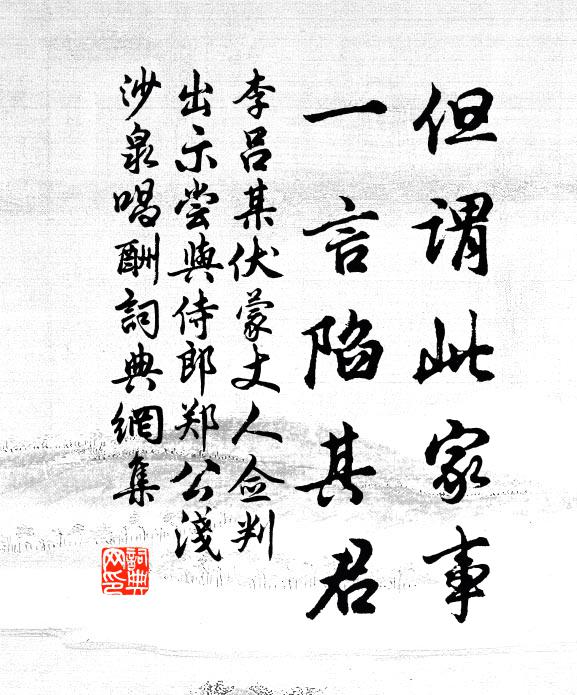 但谓此家事
一言陷其君
李吕某伏蒙丈人佥判
出示尝與侍郎郑公淺
沙泉唱酬詞典網集
詞典网印